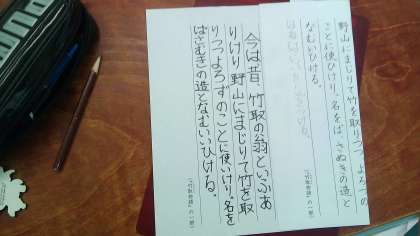 野山にまじりて竹を取りつつ よろづの
ことに使ひけり。名をば さぬきの造と
なむいひける。
(「竹取物語」の一節)
今は昔、竹取の翁といふあ
りけり 野山にまじりて竹を取
りつつよろずのことに使いけり。名を
ばさむきの造となむいいひける。
(「竹取物語」の一節)